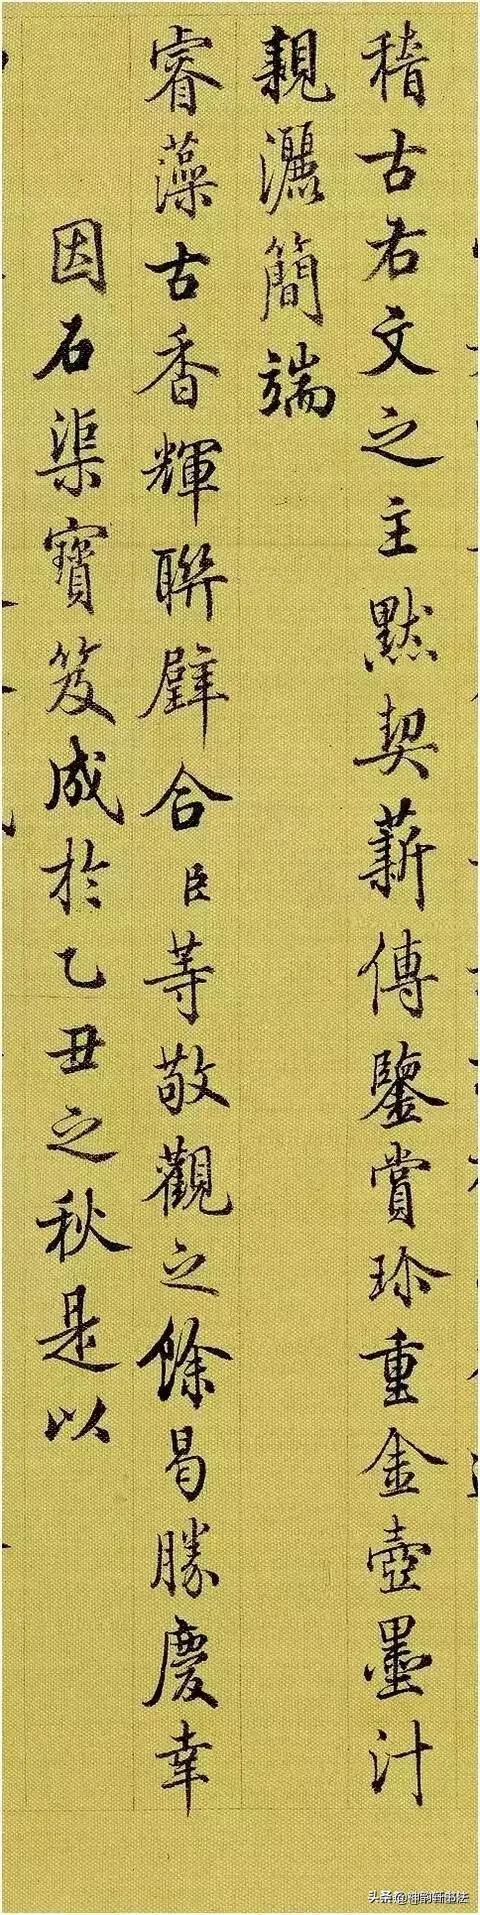 稽古右文之主默契薪傳鑒賞珍重金壺墨汁
親灑簡端
睿藻古香輝聯璧合臣等敬觀之餘曷勝慶幸
因石渠寶笈成於乙丑之秋是以
头条@神韵轩书法